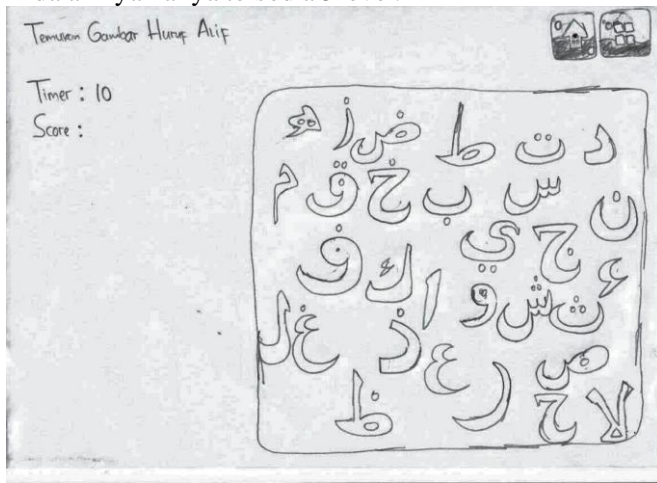 Temukan Gambar Huruf Alif
Timer : 10
Score :
د ت ط ض ز ه
ن س ب خ ق م
ج ي ف
ء ث ش و ا ك
ص ع ذ غ ل
لا ح ر ظ